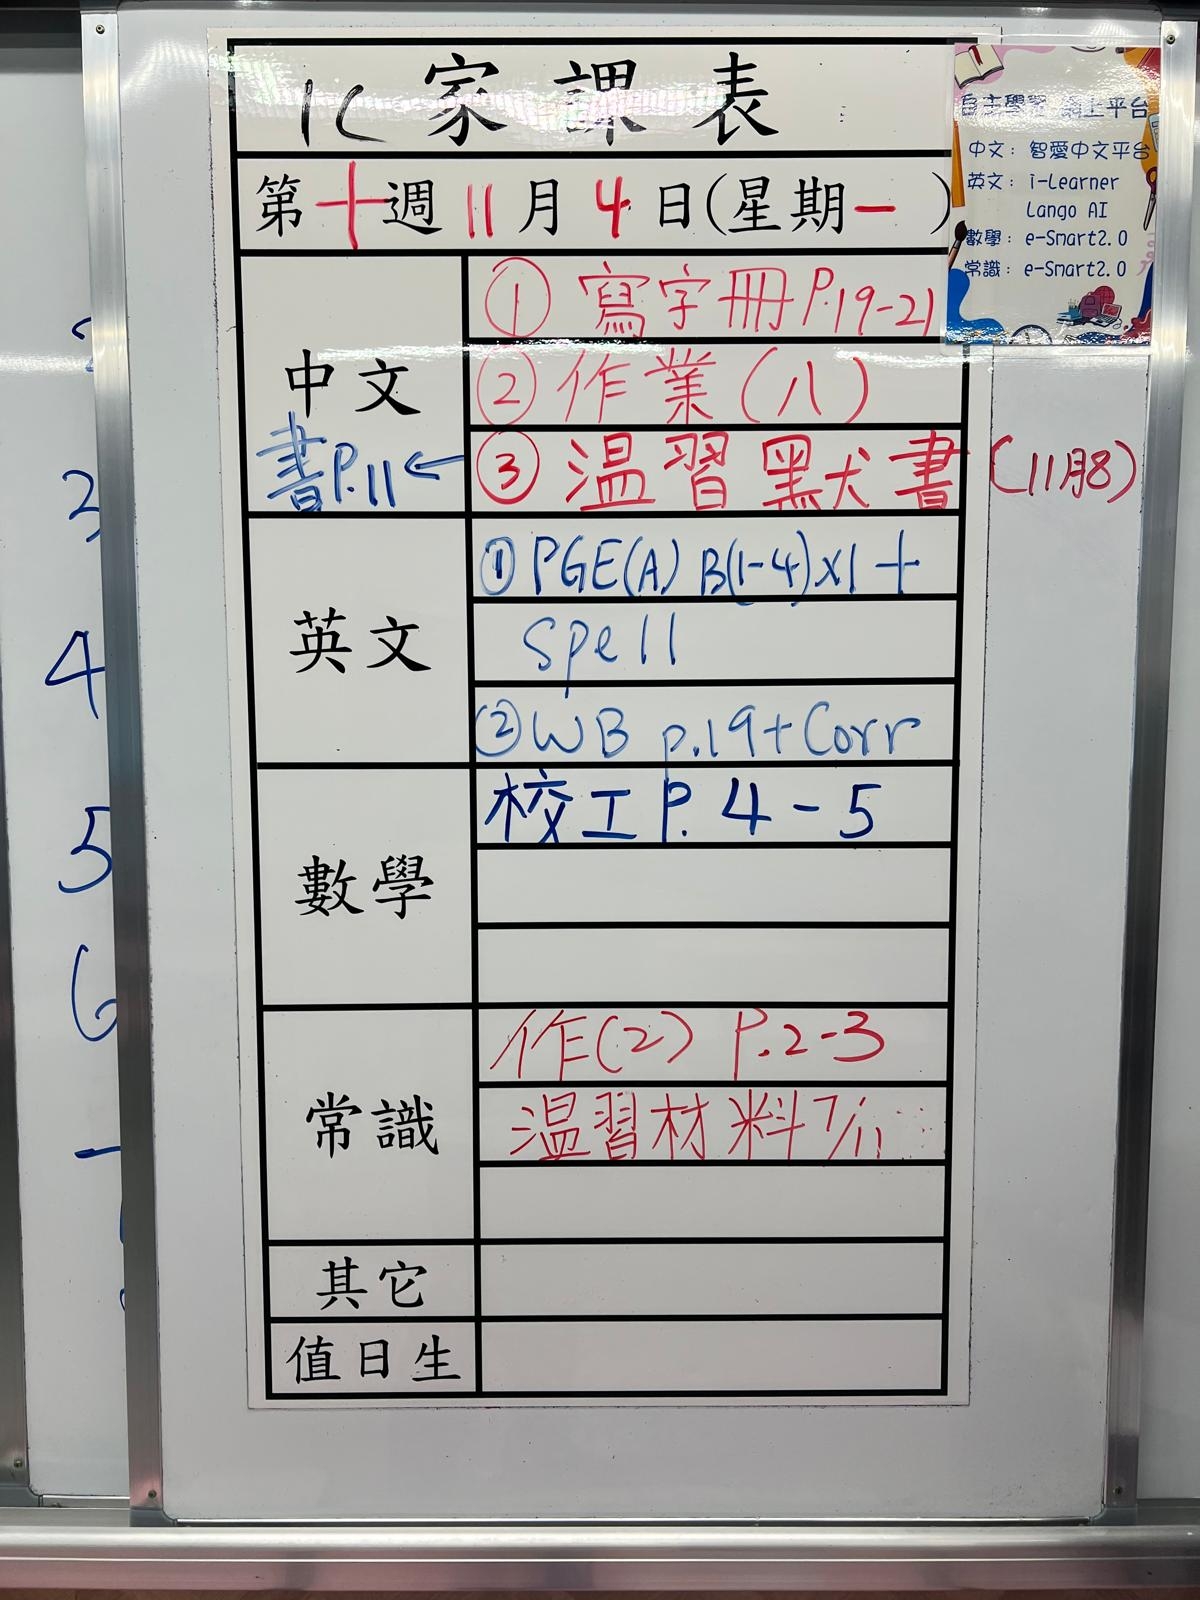 1C 家課表
第十週 11月4日(星期一)
自主學習 網上平台
中文：智愛中文平台
英文：i-Learner
Lango AI
數學：e-Smart2.0
常識：e-Smart2.0
中文
① 寫字冊P.19-21
② 作業(八)
③ 温習默書 (11月8)
書P.11←
英文
① PGE(A) B(1-4)x1+
Spell
② WB p.19+Corr
數學
校工P. 4-5
常識
作(2) P.2-3
温習材料7/11
其它
值日生
3
4
5
6